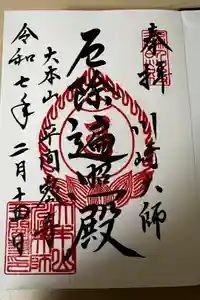 奉拝
川崎大師
厄除遍照殿
大本山平間寺
令和七年二月十四日